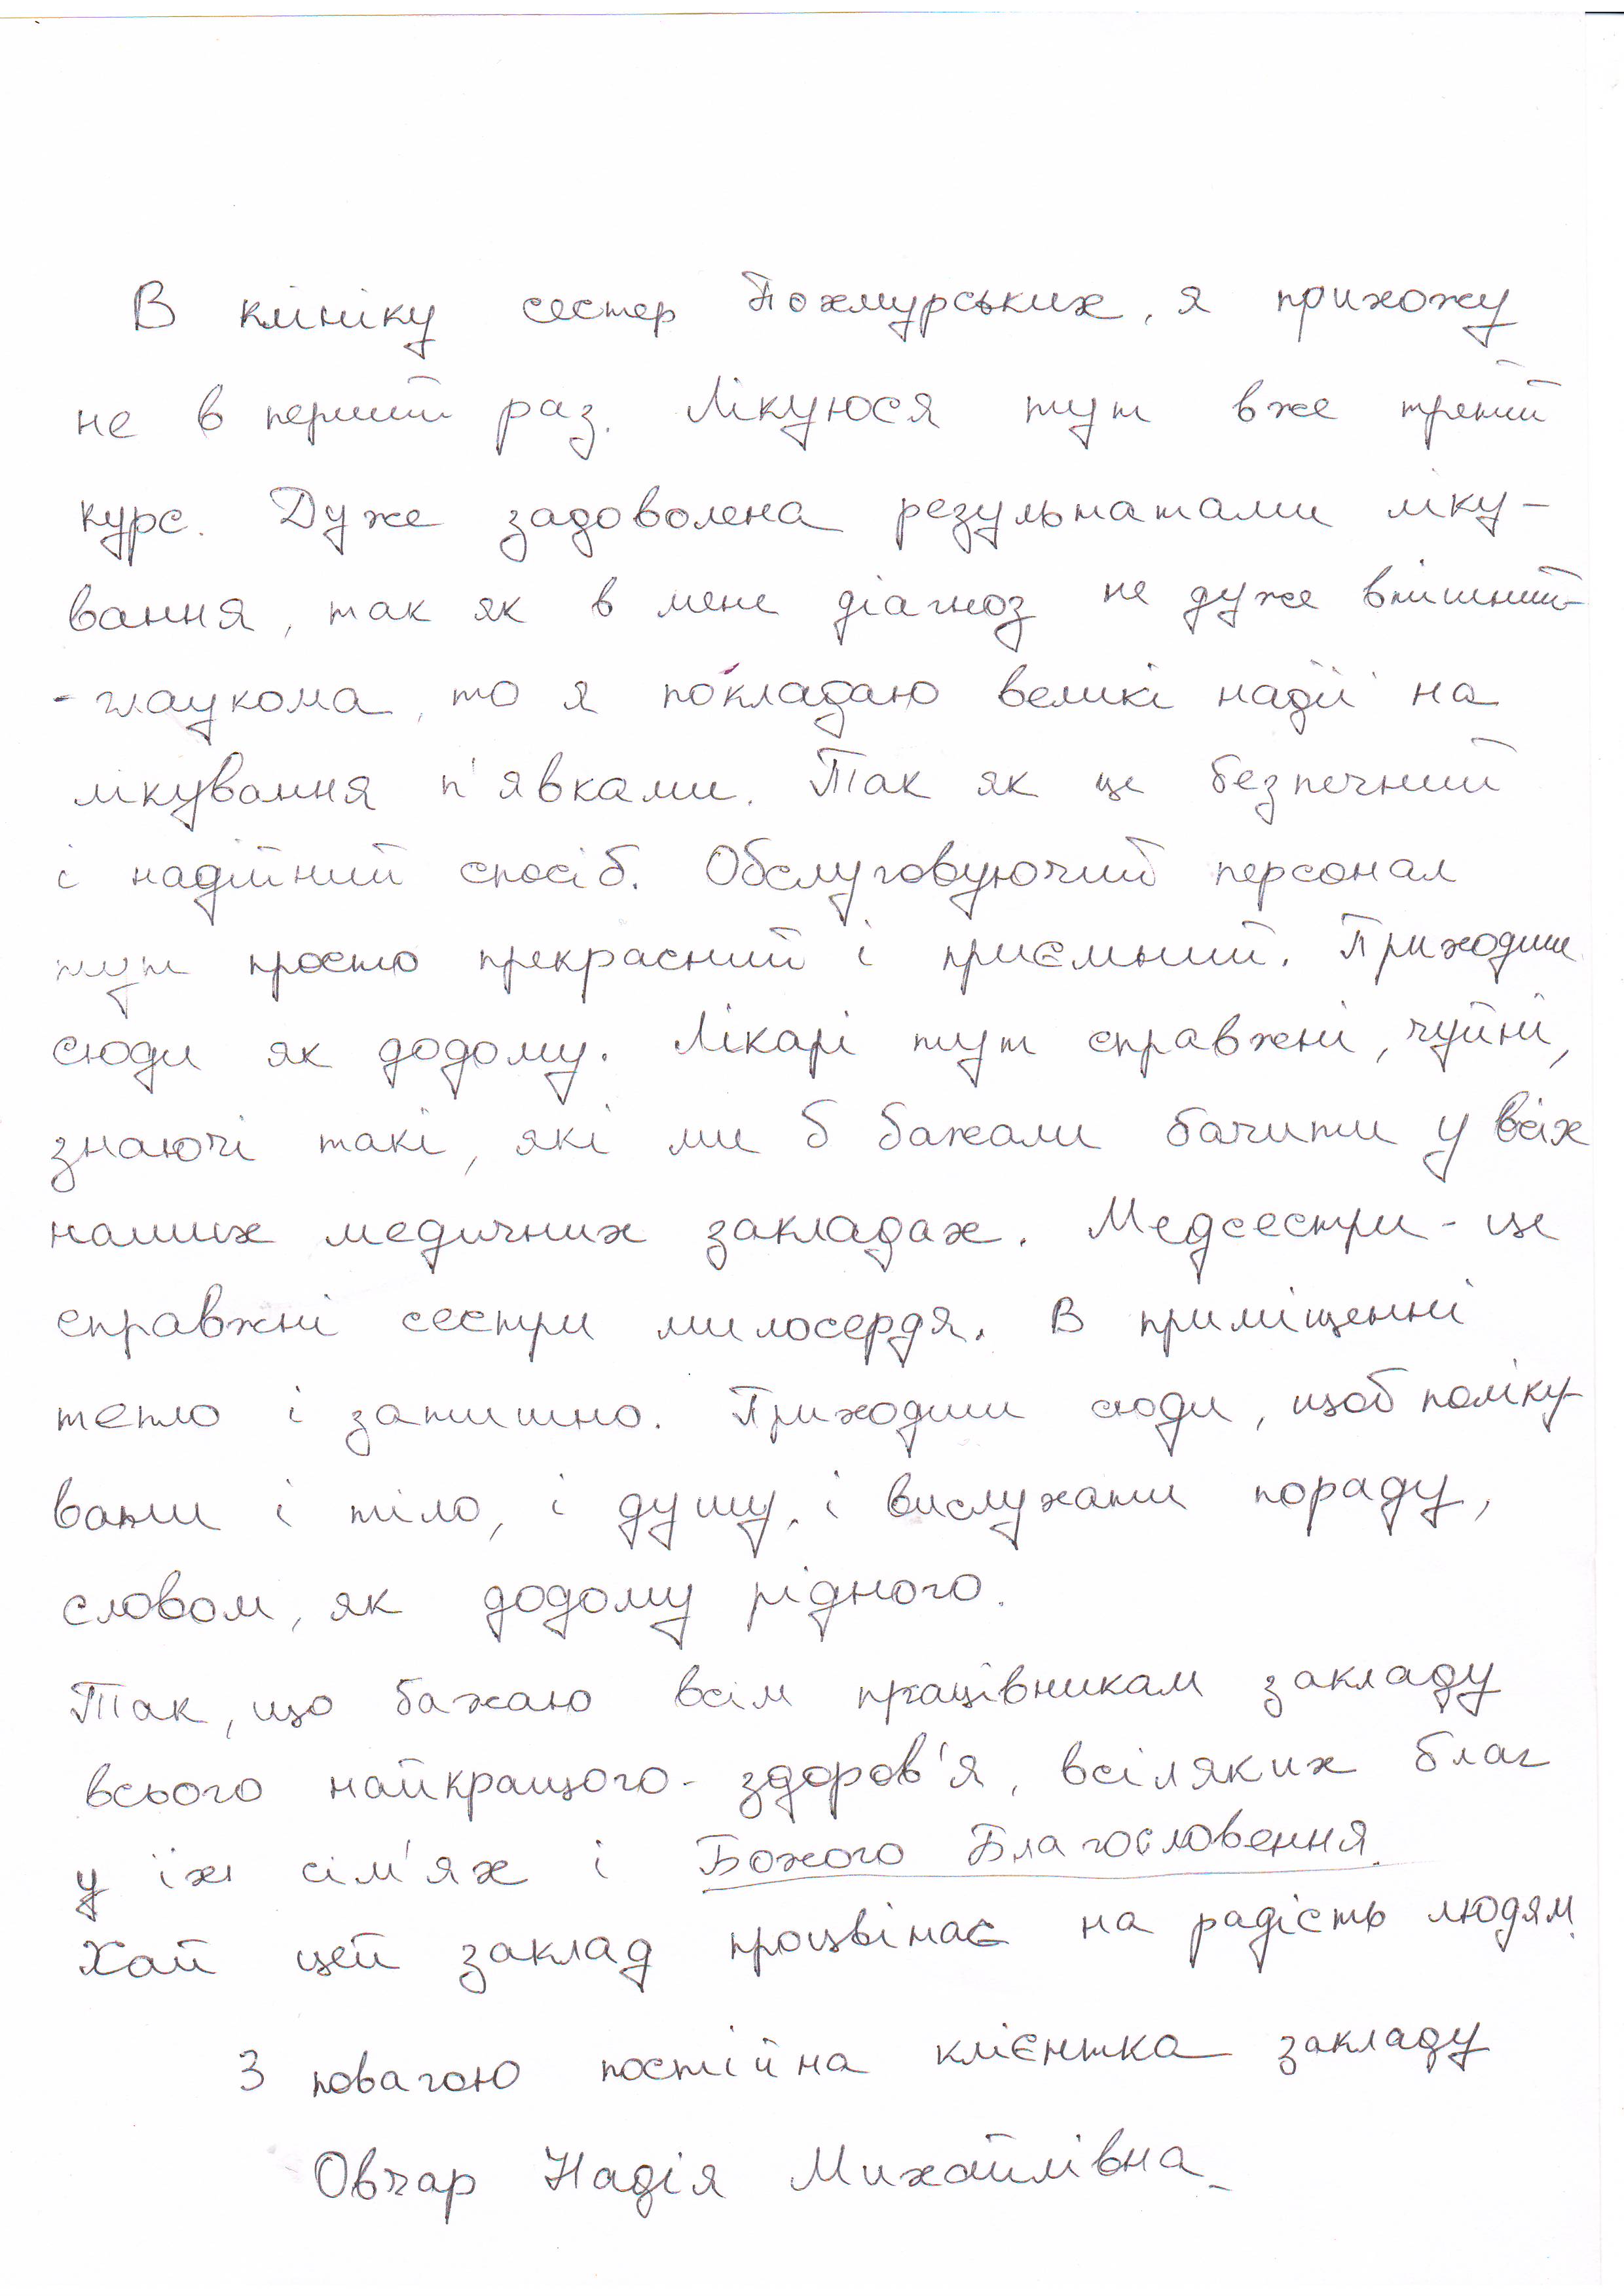 В клініку сестер Похмурських, я прихожу
не в перший раз. Лікуюся тут вже третій
курс. Дуже задоволена результатами ліку-
вання, так як в мене діагноз не дуже втішний-
- глаукома, то я покладаю великі надії на
лікування п'явками. Так як це безпечний
і надійний спосіб. Обслуговуючий персонал
тут просто прекрасний і приємний. Приходиш
сюди як додому. Лікарі тут справжні, чуйні,
знаючі такі, які ми б бажали бачити у всіх
наших медичних закладах. Медсестри - це
справжні сестри милосердя. В приміщенні
тепло і затишно. Приходиш сюди, щоб поліку-
вати і тіло, і душу, і вислухати пораду,
словом, як додому рідного.
Так, що бажаю всім працівникам закладу
всього найкращого - здоров'я, всіляких благ
у їх сім'ях і Божого Благословення.
Хай цей заклад процвітає на радість людям.
З повагою постійна клієнтка закладу
Овчар Надія Михайлівна